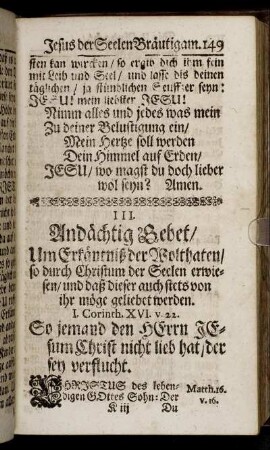 Jesus der Seelen Bräutigam. 149
ffen kan wircken / so ergib dich ihm fein
mit Leib und Seel / und lasse diß deinen
täglichen / ja stündlichen Seuffzer seyn:
JESU! mein liebster JESU!
Nimm alles und jedes was mein
Zu deiner Belustigung ein /
Mein Hertze soll werden
Dein Himmel auf Erden /
JESU / wo magst du doch lieber
wol seyn? Amen.
III.
Andächtig Gebet /
Um Erkäntniß der Wolthaten /
so durch Christum der Seelen erwie-
sen / und daß dieser auch stets von
ihr möge geliebet werden.
I. Corinth. XVI. v. 22.
So jemand den HErrn JE-
sum Christ nicht lieb hat / der
sey verflucht.
CHRISTUS des leben- Matth. 16.
digen GOttes Sohn: Der v. 16.
K iij Du